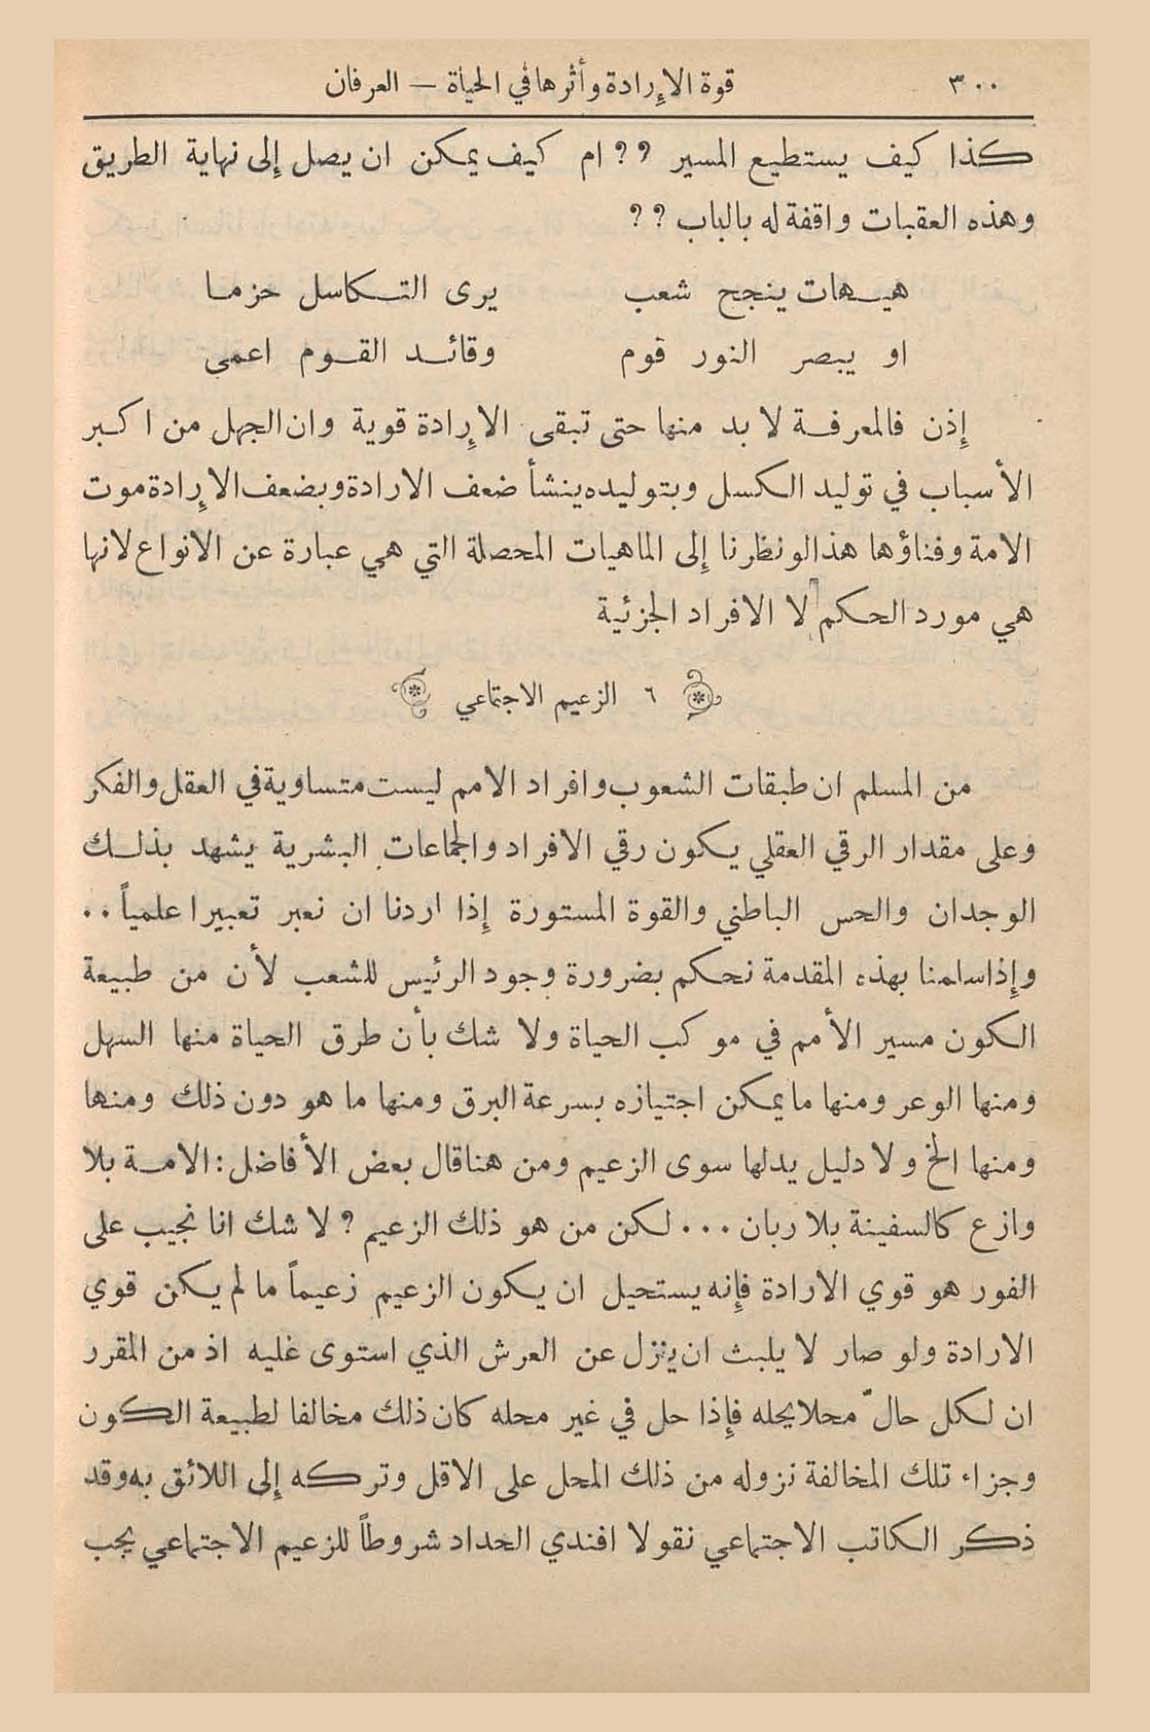 ٣٠٠ قوة الإرادة وأثرها في الحياة — العرفان
كذا كيف يستطيع المسير ؟؟ ام كيف يمكن ان يصل إلى نهاية الطريق
وهذه العقبات واقفة له بالباب ؟؟
هيهات ينجح شعب يرى التكاسل حزما
او يبصر النور قوم وقائد القوم اعمى
إذن فالمعرفة لا بد منها حتى تبقى الإرادة قوية وان الجهل من اكبر
الأسباب في توليد الكسل وبتوليده ينشأ ضعف الارادة وبضعف الإرادة موت
الامة وفناؤها هذا لو نظرنا إلى الماهيات المحصلة التي هي عبارة عن الانواع لانها
هي مورد الحكم لا الافراد الجزئية
٦ الزعيم الاجتماعي
من المسلم ان طبقات الشعوب وافراد الامم ليست متساوية في العقل والفكر
وعلى مقدار الرقي العقلي يكون رقي الافراد والجماعات البشرية يشهد بذلك
الوجدان والحس الباطني والقوة المستورة إذا اردنا ان نعبر تعبيرا علمياً ..
وإذا سلمنا بهذه المقدمة نحكم بضرورة وجود الرئيس للشعب لأن من طبيعة
الكون مسير الأمم في موكب الحياة ولا شك بأن طرق الحياة منها السهل
ومنها الوعر ومنها ما يمكن اجتيازه بسرعة البرق ومنها ما هو دون ذلك ومنها
ومنها الخ ولا دليل يدلها سوى الزعيم ومن هنا قال بعض الأفاضل : الامة بلا
وازع كالسفينة بلا ربان ... لكن من هو ذلك الزعيم ؟ لا شك انا نجيب على
الفور هو قوي الارادة فإنه يستحيل ان يكون الزعيم زعيماً ما لم يكن قوي
الارادة ولو صار لا يلبث ان ينزل عن العرش الذي استوى غليه اذ من المقرر
ان لكل حالّ محلا يحله فإذا حل في غير محله كان ذلك مخالفا لطبيعة الكون
وجزاء تلك المخالفة نزوله من ذلك المحل على الاقل وتركه إلى اللائق به وقد
ذكر الكاتب الاجتماعي نقولا افندي الحداد شروطاً للزعيم الاجتماعي يجب